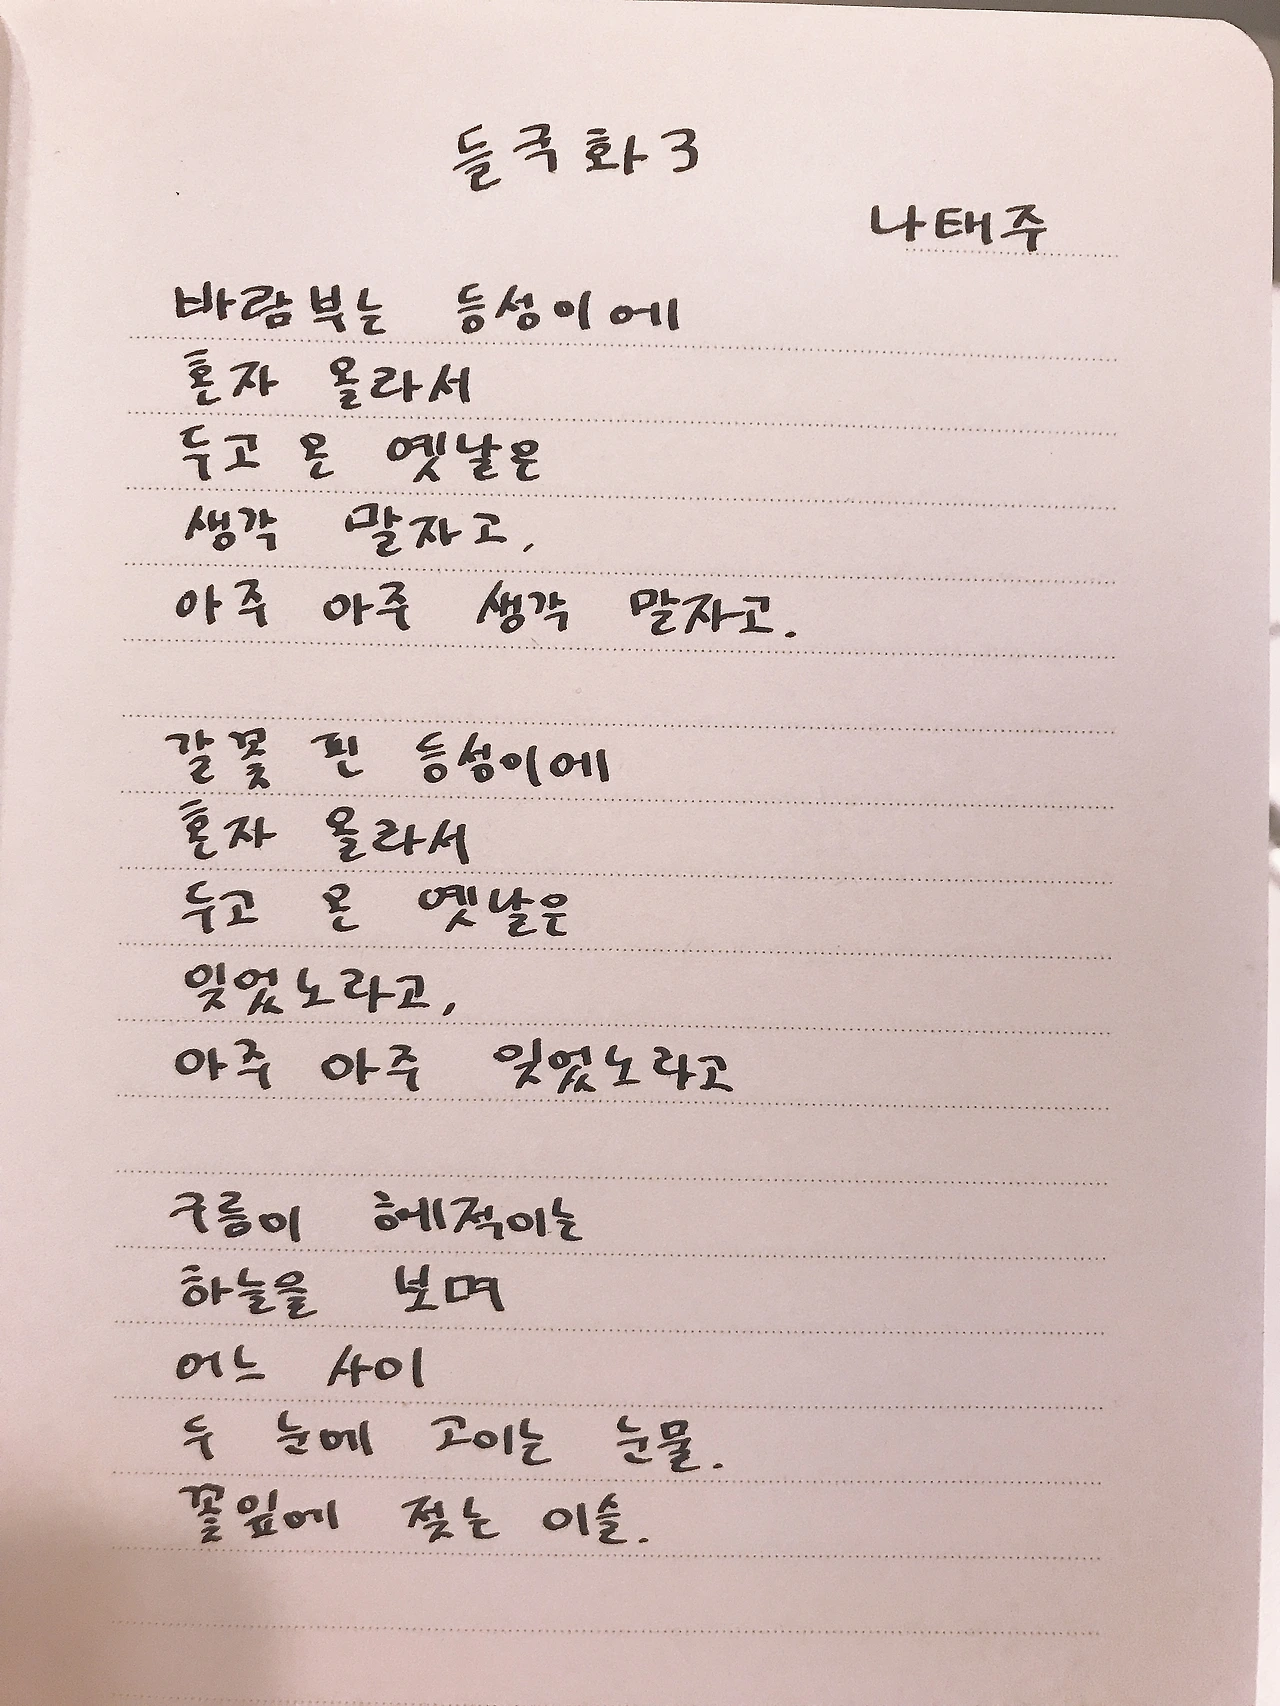 들국화 3
나태주
바람부는 등성이에
혼자 올라서
두고 온 옛날은
생각 말자고,
아주 아주 생각 말자고.
갈꽃 핀 등성이에
혼자 올라서
두고 온 옛날은
잊었노라고,
아주 아주 잊었노라고
구름이 헤적이는
하늘을 보며
어느 사이
두 눈에 고이는 눈물.
꽃잎에 젖는 이슬.